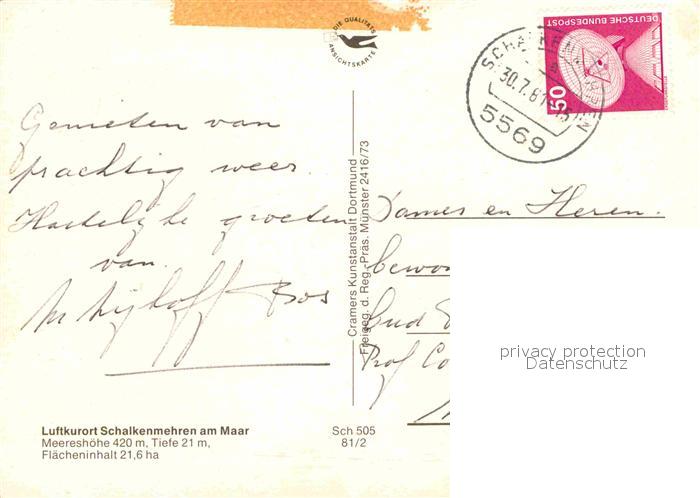 DIE QUALITÄTS
ANSICHTSKARTE
DEUTSCHE BUNDESPOST
50
SCHALKENMEHREN
30.7.81-15
5569
Genieten van
prachtig weer.
Hartelijke groeten
van.
M Nijhoff Bos
Cramers Kunstanstalt Dortmund
Freigeg. d. Reg.-Präs. Münster 2416/73
Dames en Heren.
bewo
Prof Co
privacy protection
Datenschutz
Luftkurort Schalkenmehren am Maar
Meereshöhe 420 m, Tiefe 21 m,
Flächeninhalt 21,6 ha
Sch 505
81/2